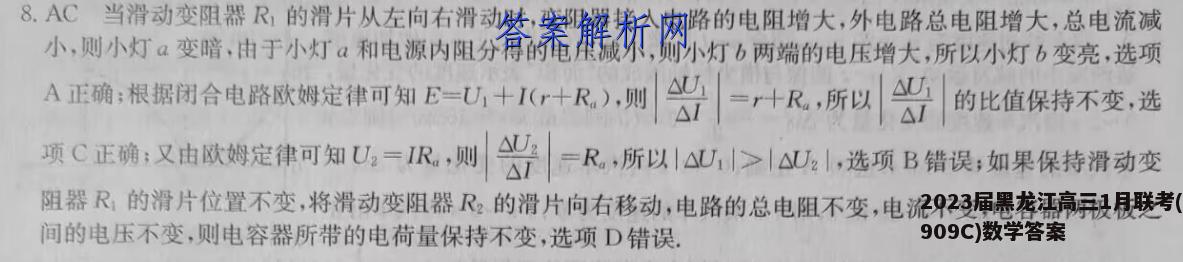 8. AC 当滑动变阻器 R₁ 的滑片从左向右滑动 路的电阻增大,外电路总电阻增大,总电流减
答案解析网
小,则小灯 a 变暗,由于小灯 a 和电源内阻分得的电压减小,则小灯 b 两端的电压增大,所以小灯 b 变亮,选项
A 正确;根据闭合电路欧姆定律可知 E=U₁+I(r+Rₐ),则|ΔU₁/ΔI|=r+Rₐ,所以|ΔU₁/ΔI|的比值保持不变,选
项 C 正确;又由欧姆定律可知 U₂=IRₐ,则|ΔU₂/ΔI|=Rₐ,所以|ΔU₁|>|ΔU₂|,选项 B 错误;如果保持滑动变
阻器 R₁ 的滑片位置不变,将滑动变阻器 R₂ 的滑片向右移动,电路的总电阻不变,电流
2023届黑龙江高三1月联考(
909C)数学答案
间的电压不变,则电容器所带的电荷量保持不变,选项 D 错误.